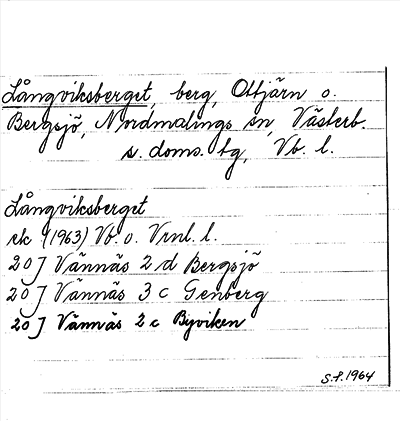 Långviksberget, berg, Ottjärn o.
Bergsjö, Nordmalings sn, Västerb.
s. doms. tg, Vb. l.
Långviksberget
ek (1963) Vb. o. Vrnl. l.
20 J Vännäs 2 d Bergsjö
20 J Vännäs 3 c Genberg
20 J Vännäs 2 c Byviken
S.f. 1964